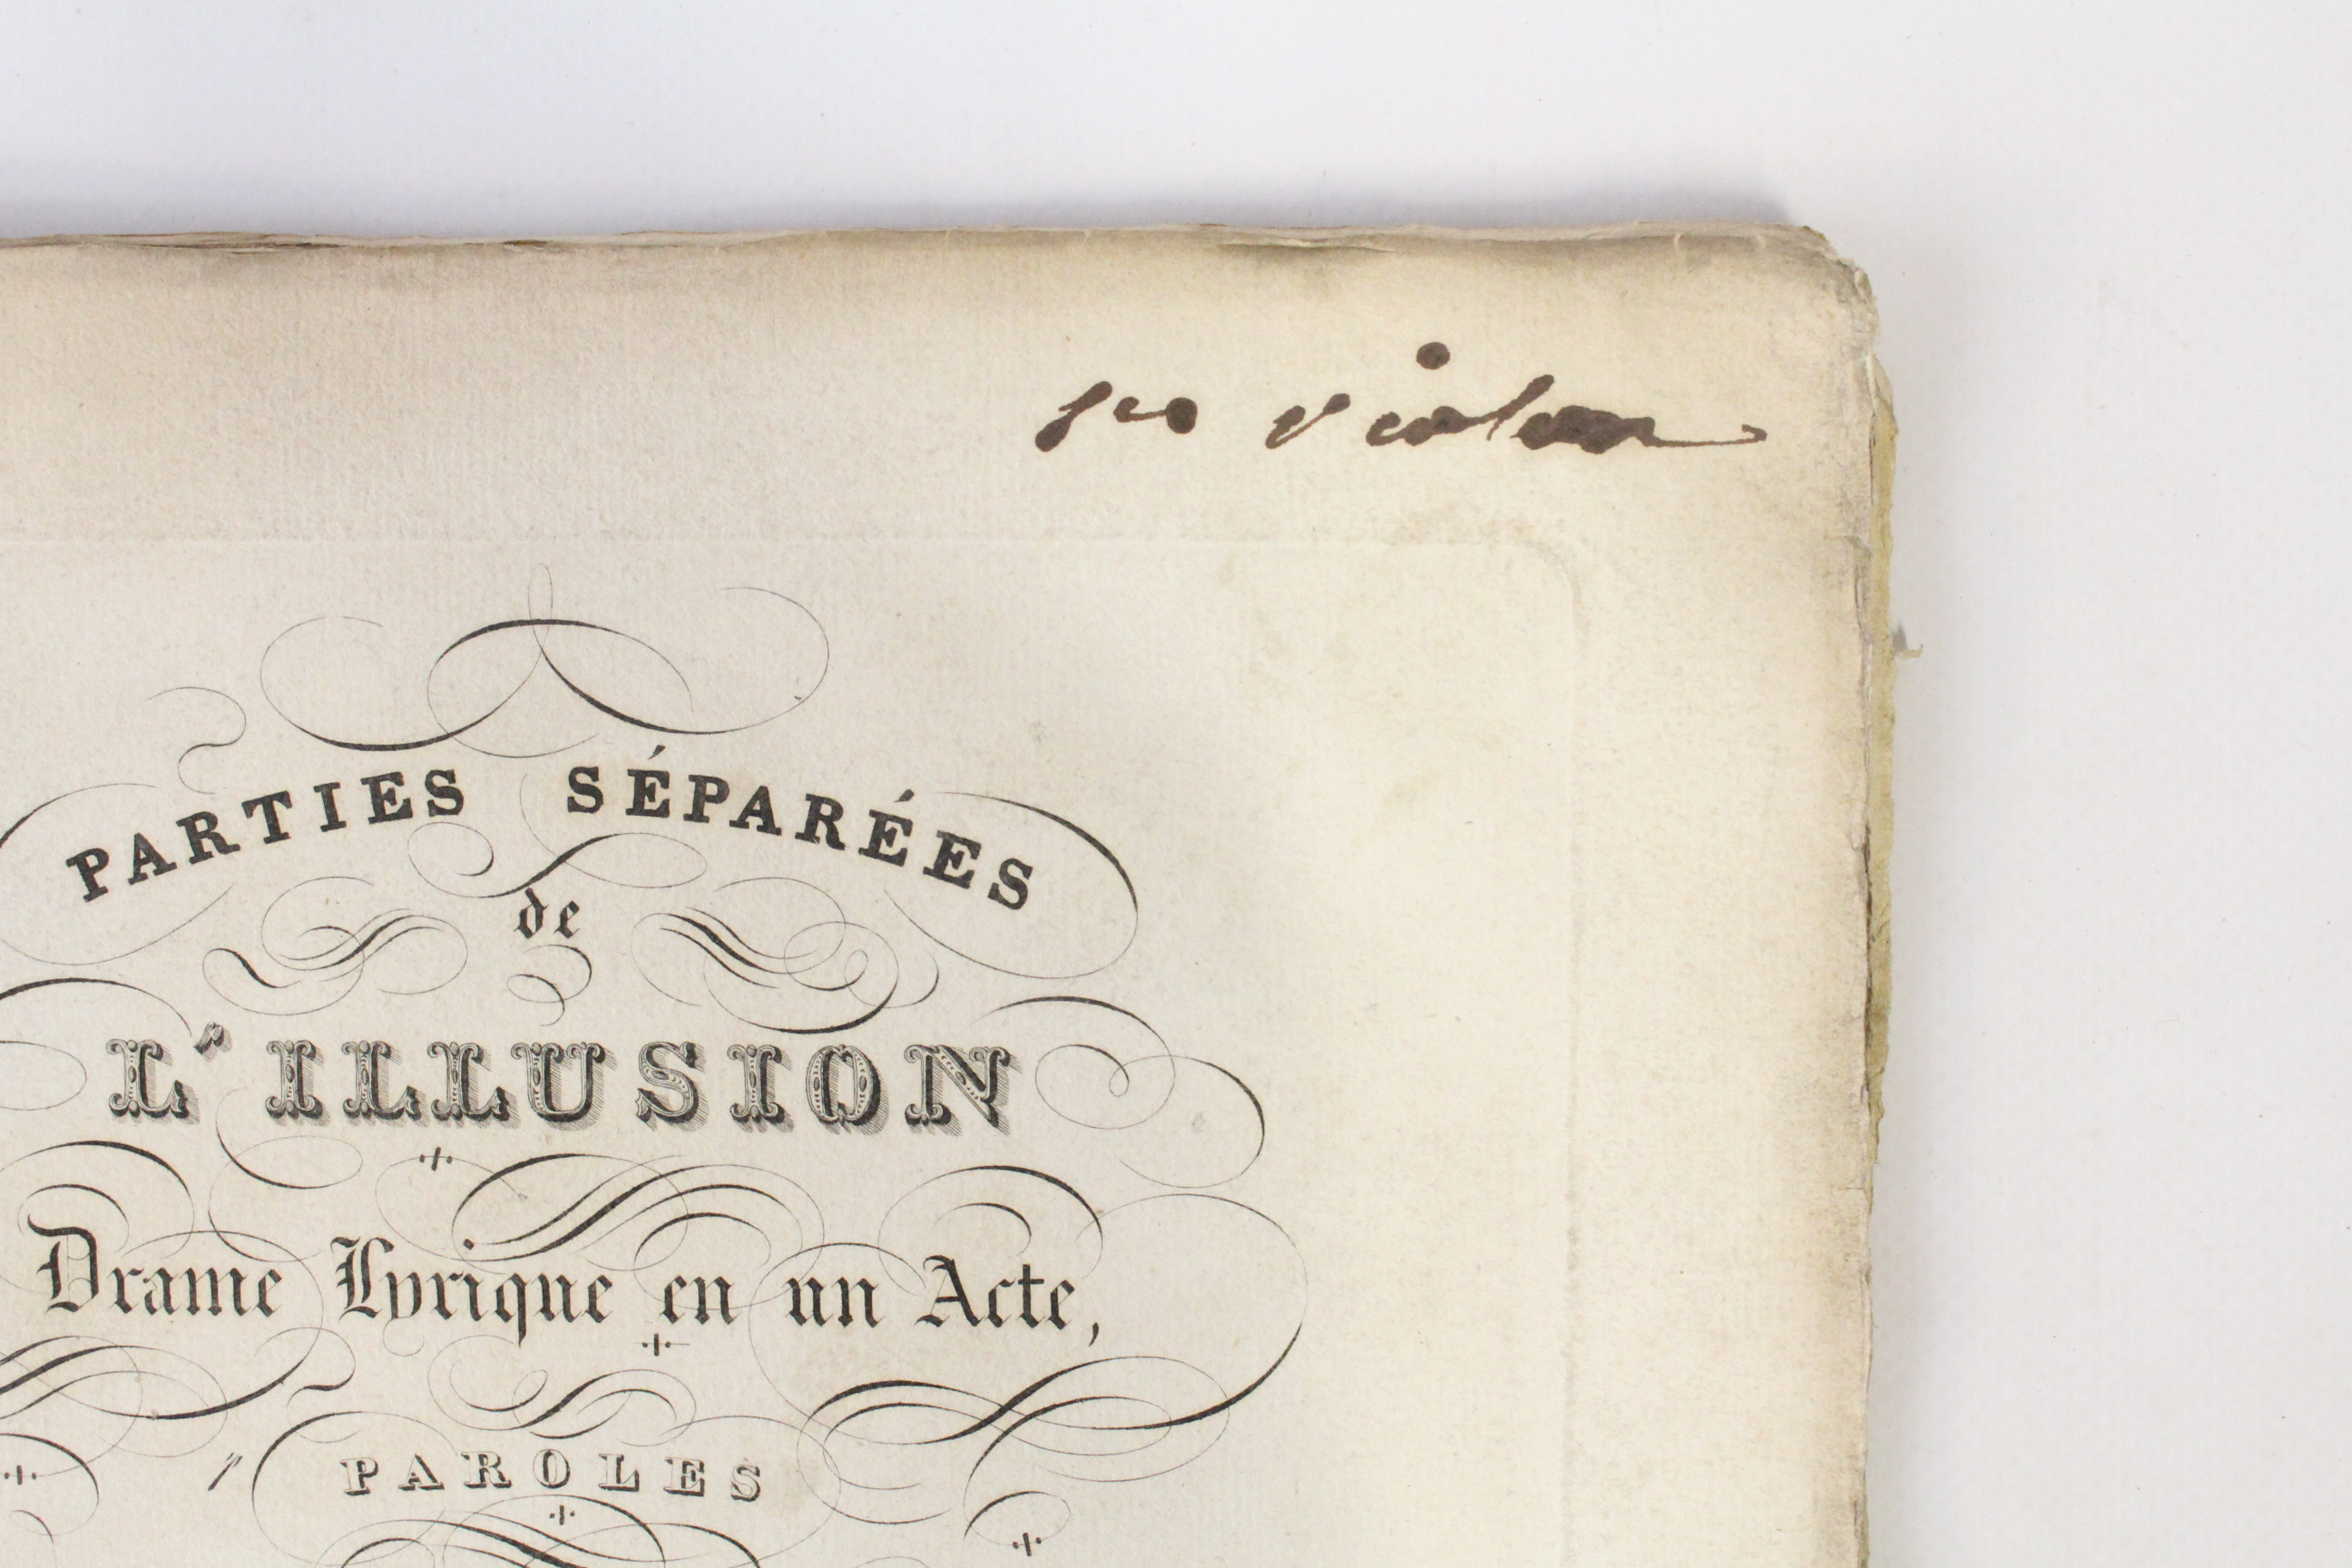 violon
PARTIES SÉPARÉES
de
L'ILLUSION
Drame Lyrique en un Acte,
PAROLES